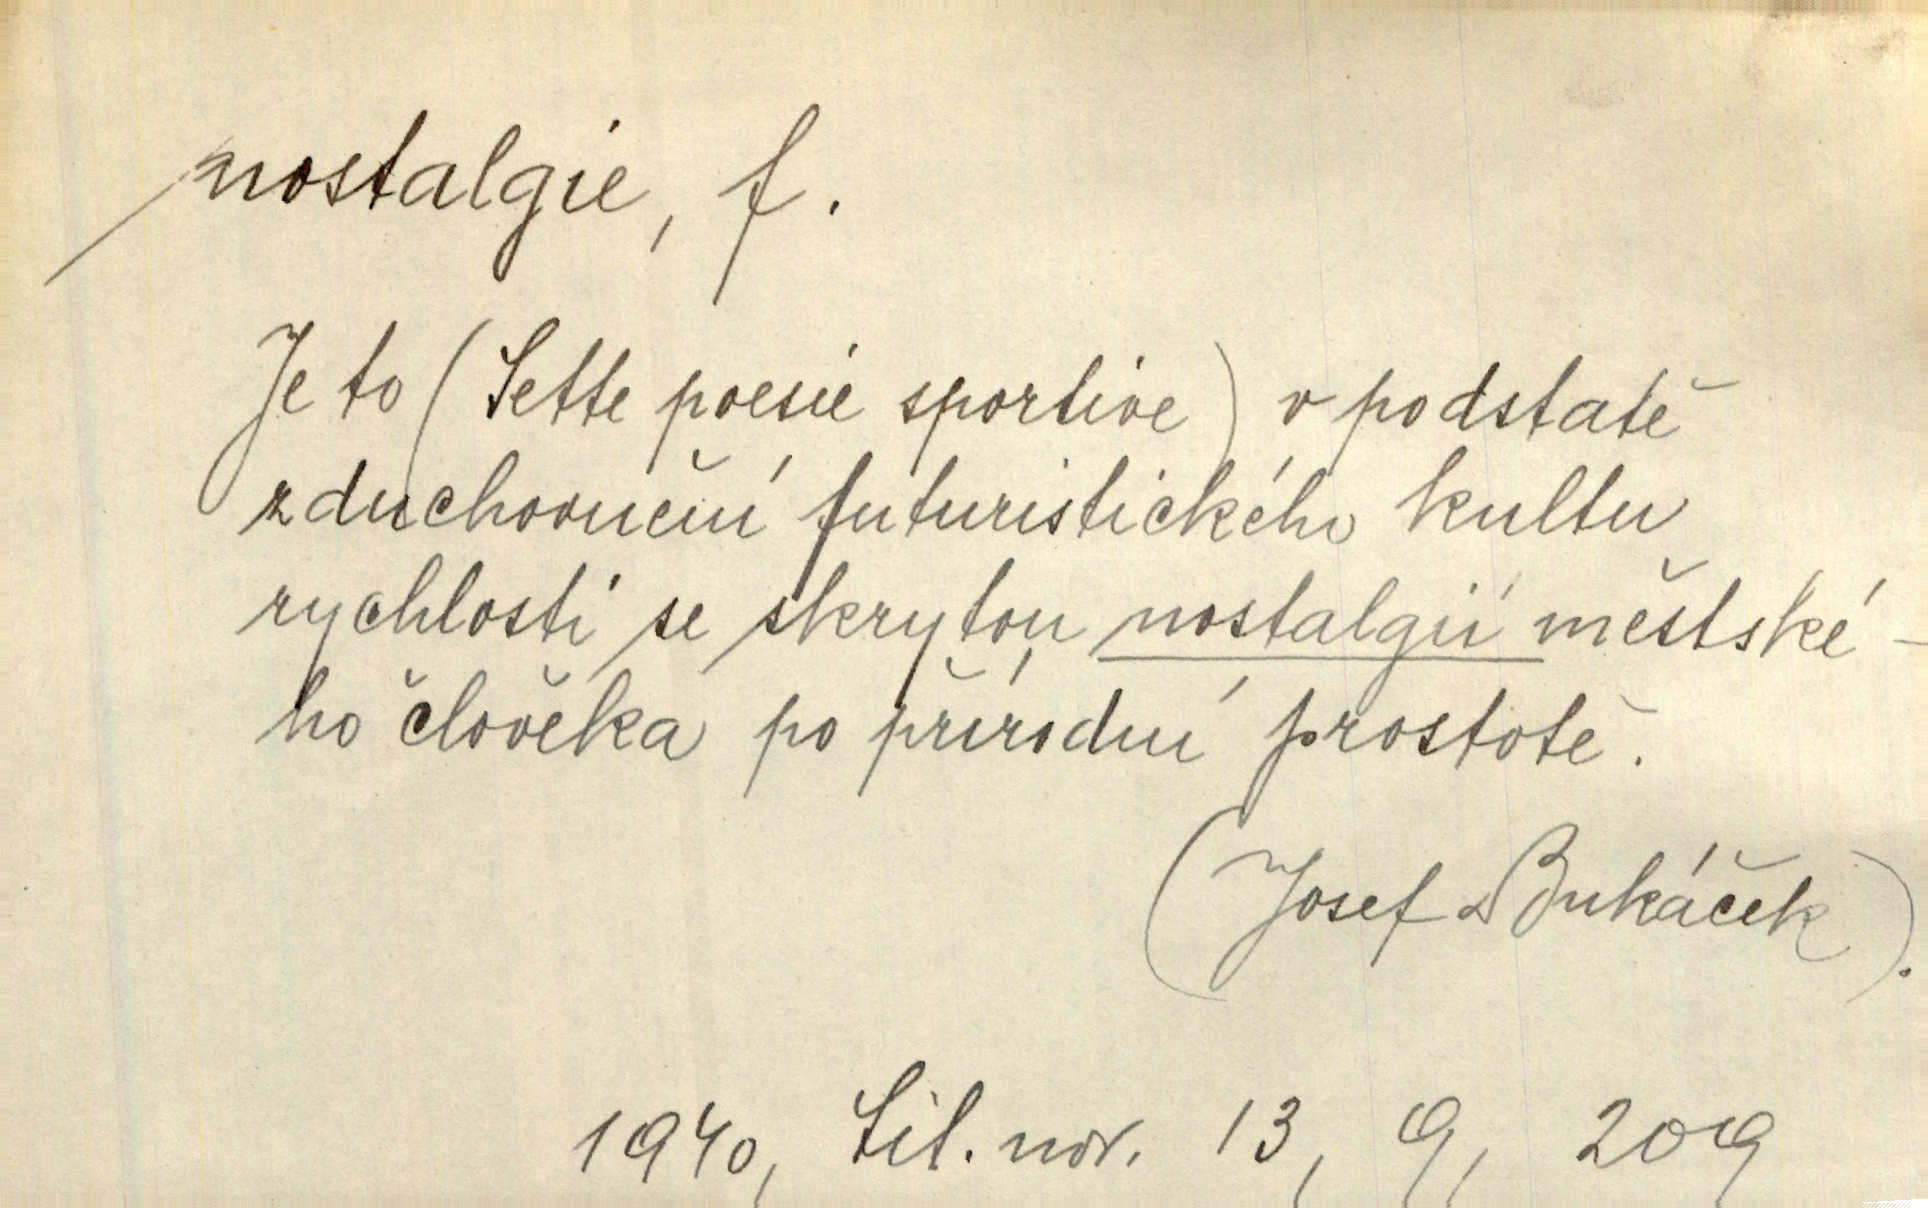 nostalgie, f.
Je to (Sette poesie sportive) v podstatě
zduchovnění futuristického kultu
rychlosti se skrytou nostalgií městské-
ho člověka po přírodní prostotě.
(Josef Bukáček).
1940, Lit. nov. 13, 9, 209